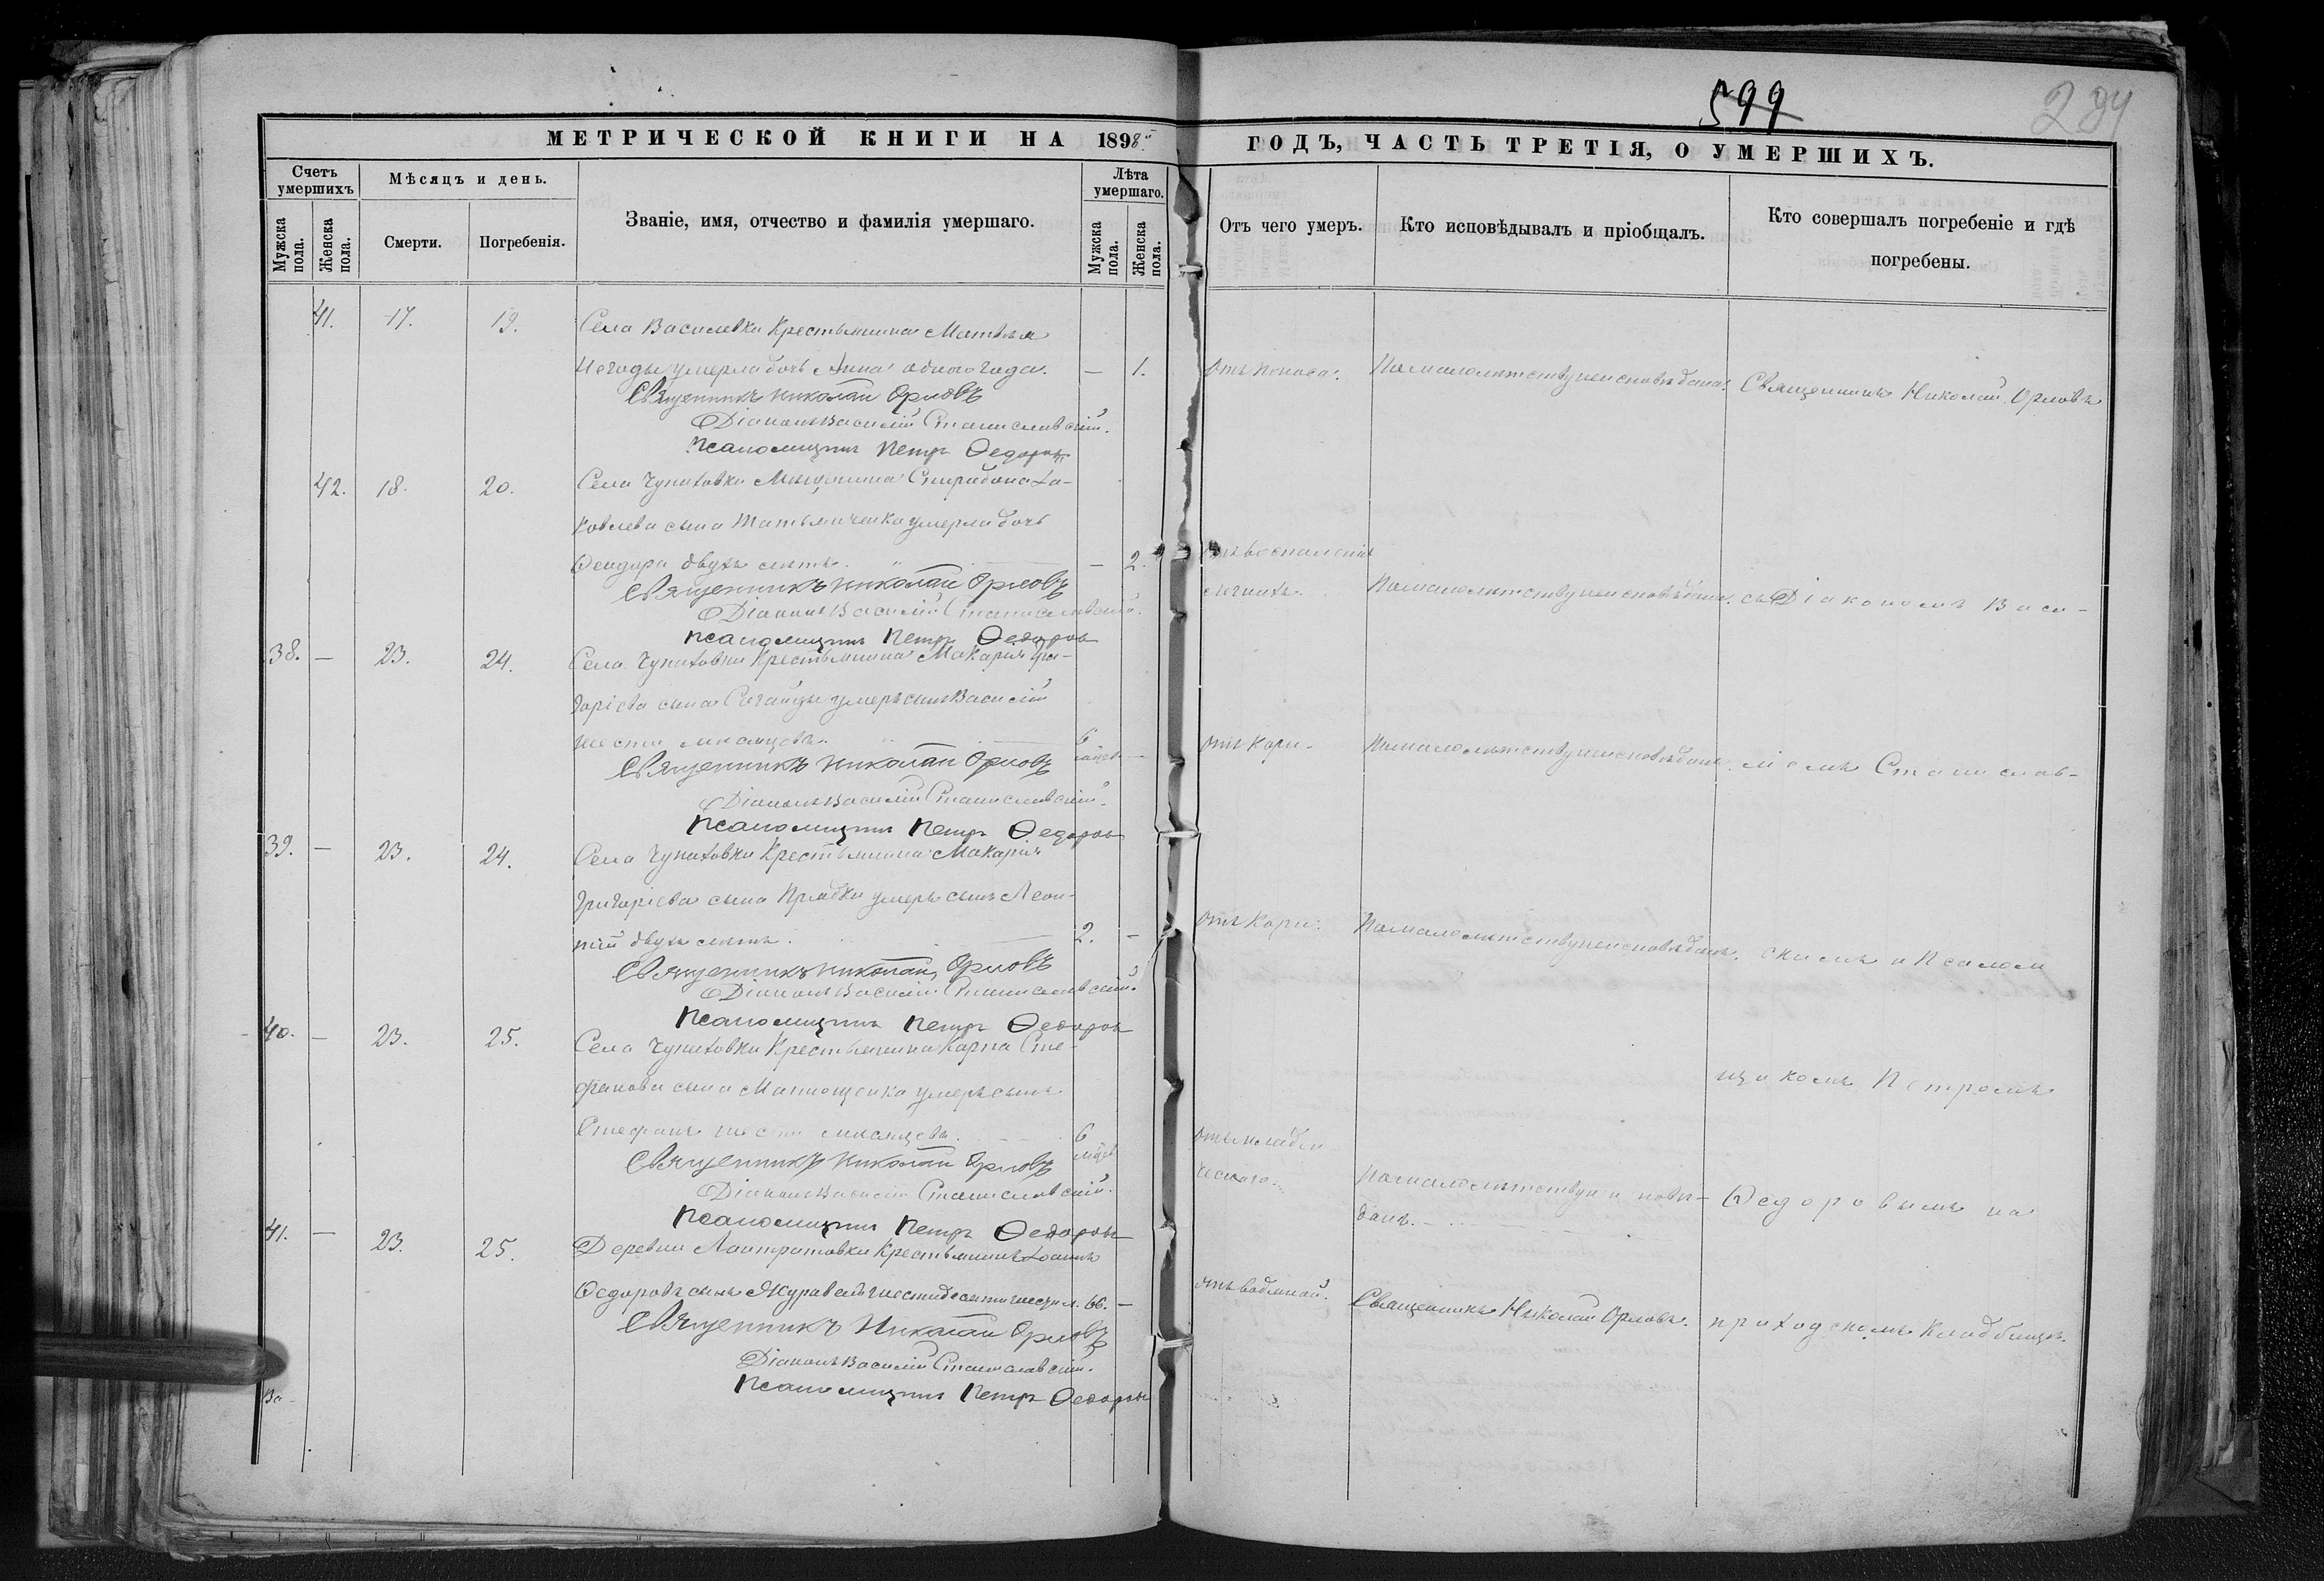 599
284
МЕТРИЧЕСКОЙ КНИГИ НА 1898й ГОДЪ, ЧАСТЬ ТРЕТІЯ, О УМЕРШИХЪ.
Счетъ умершихъ
Мѣсяцъ и день.
Званіе, имя, отчество и фамилія умершаго.
Лѣта умершаго.
Мужска пола.
Женска пола.
Смерти.
Погребенія.
Мужска пола.
Женска пола.
Отъ чего умеръ.
Кто исповѣдывалъ и пріобщалъ.
Кто совершалъ погребеніе и гдѣ
погребены.
41. 17. 19. Села Василевки Крестьянина Матвѣя
умерла дочь Анна одного года. — 1. Отъ поноса. По малолѣтству неисповѣдана. Священникъ Николай Орловъ
Священникъ Николай Орловъ
Діаконъ Василій Станиславскій.
Псаломщикъ Петръ Ѳедоровъ
42. 18. 20. Села Чупаховки Мѣщанина Спиридона Іа-
ковлева сына Татьянченка умерла дочь
двухъ лѣтъ. — 2. Отъ воспаленія
Священникъ Николай Орловъ
легкихъ. По малолѣтству неисповѣдана. съ Діакономъ Васи-
Діаконъ Василій Станиславскій.
Псаломщикъ Петръ Ѳедоровъ
38. — 23. 24. Села Чупаховки Крестьянина Макарія Гри-
горіева сына умеръ сынъ Василій
шести мѣсяцевъ. 6 мѣсяц. — Отъ кори. По малолѣтству неисповѣданъ. ліемъ Станислав-
Священникъ Николай Орловъ
Діаконъ Василій Станиславскій.
Псаломщикъ Петръ Ѳедоровъ
39. — 23. 24. Села Чупаховки Крестьянина Макарія
Григоріева сына Прядки умеръ сынъ Леон-
тій двухъ лѣтъ. 2. — Отъ кори. По малолѣтству неисповѣданъ. скимъ и Псалом
Священникъ Николай Орловъ
Діаконъ Василій Станиславскій.
Псаломщикъ Петръ Ѳедоровъ
40. — 23. 25. Села Чупаховки Крестьянина Карпа Сте-
фанова сына Матющенка умеръ сынъ
щикомъ Петромъ
Стефанъ шести мѣсяцевъ. 6 мѣсяц. Отъ младен
Священникъ Николай Орловъ
ческаго. По малолѣтству неисповѣ-
данъ. Ѳедоровымъ на
Діаконъ Василій Станиславскій.
Псаломщикъ Петръ Ѳедоровъ
41. — 23. 25. Деревни Лантратовки Крестьянинъ Іоаннъ
Ѳедоровъ сынъ Журавель шестидесяти шести л. 66. — Отъ водяной. Священникъ Николай Орловъ. приходскомъ кладбищѣ.
Священникъ Николай Орловъ
Діаконъ Василій Станиславскій.
Псаломщикъ Петръ Ѳедоровъ